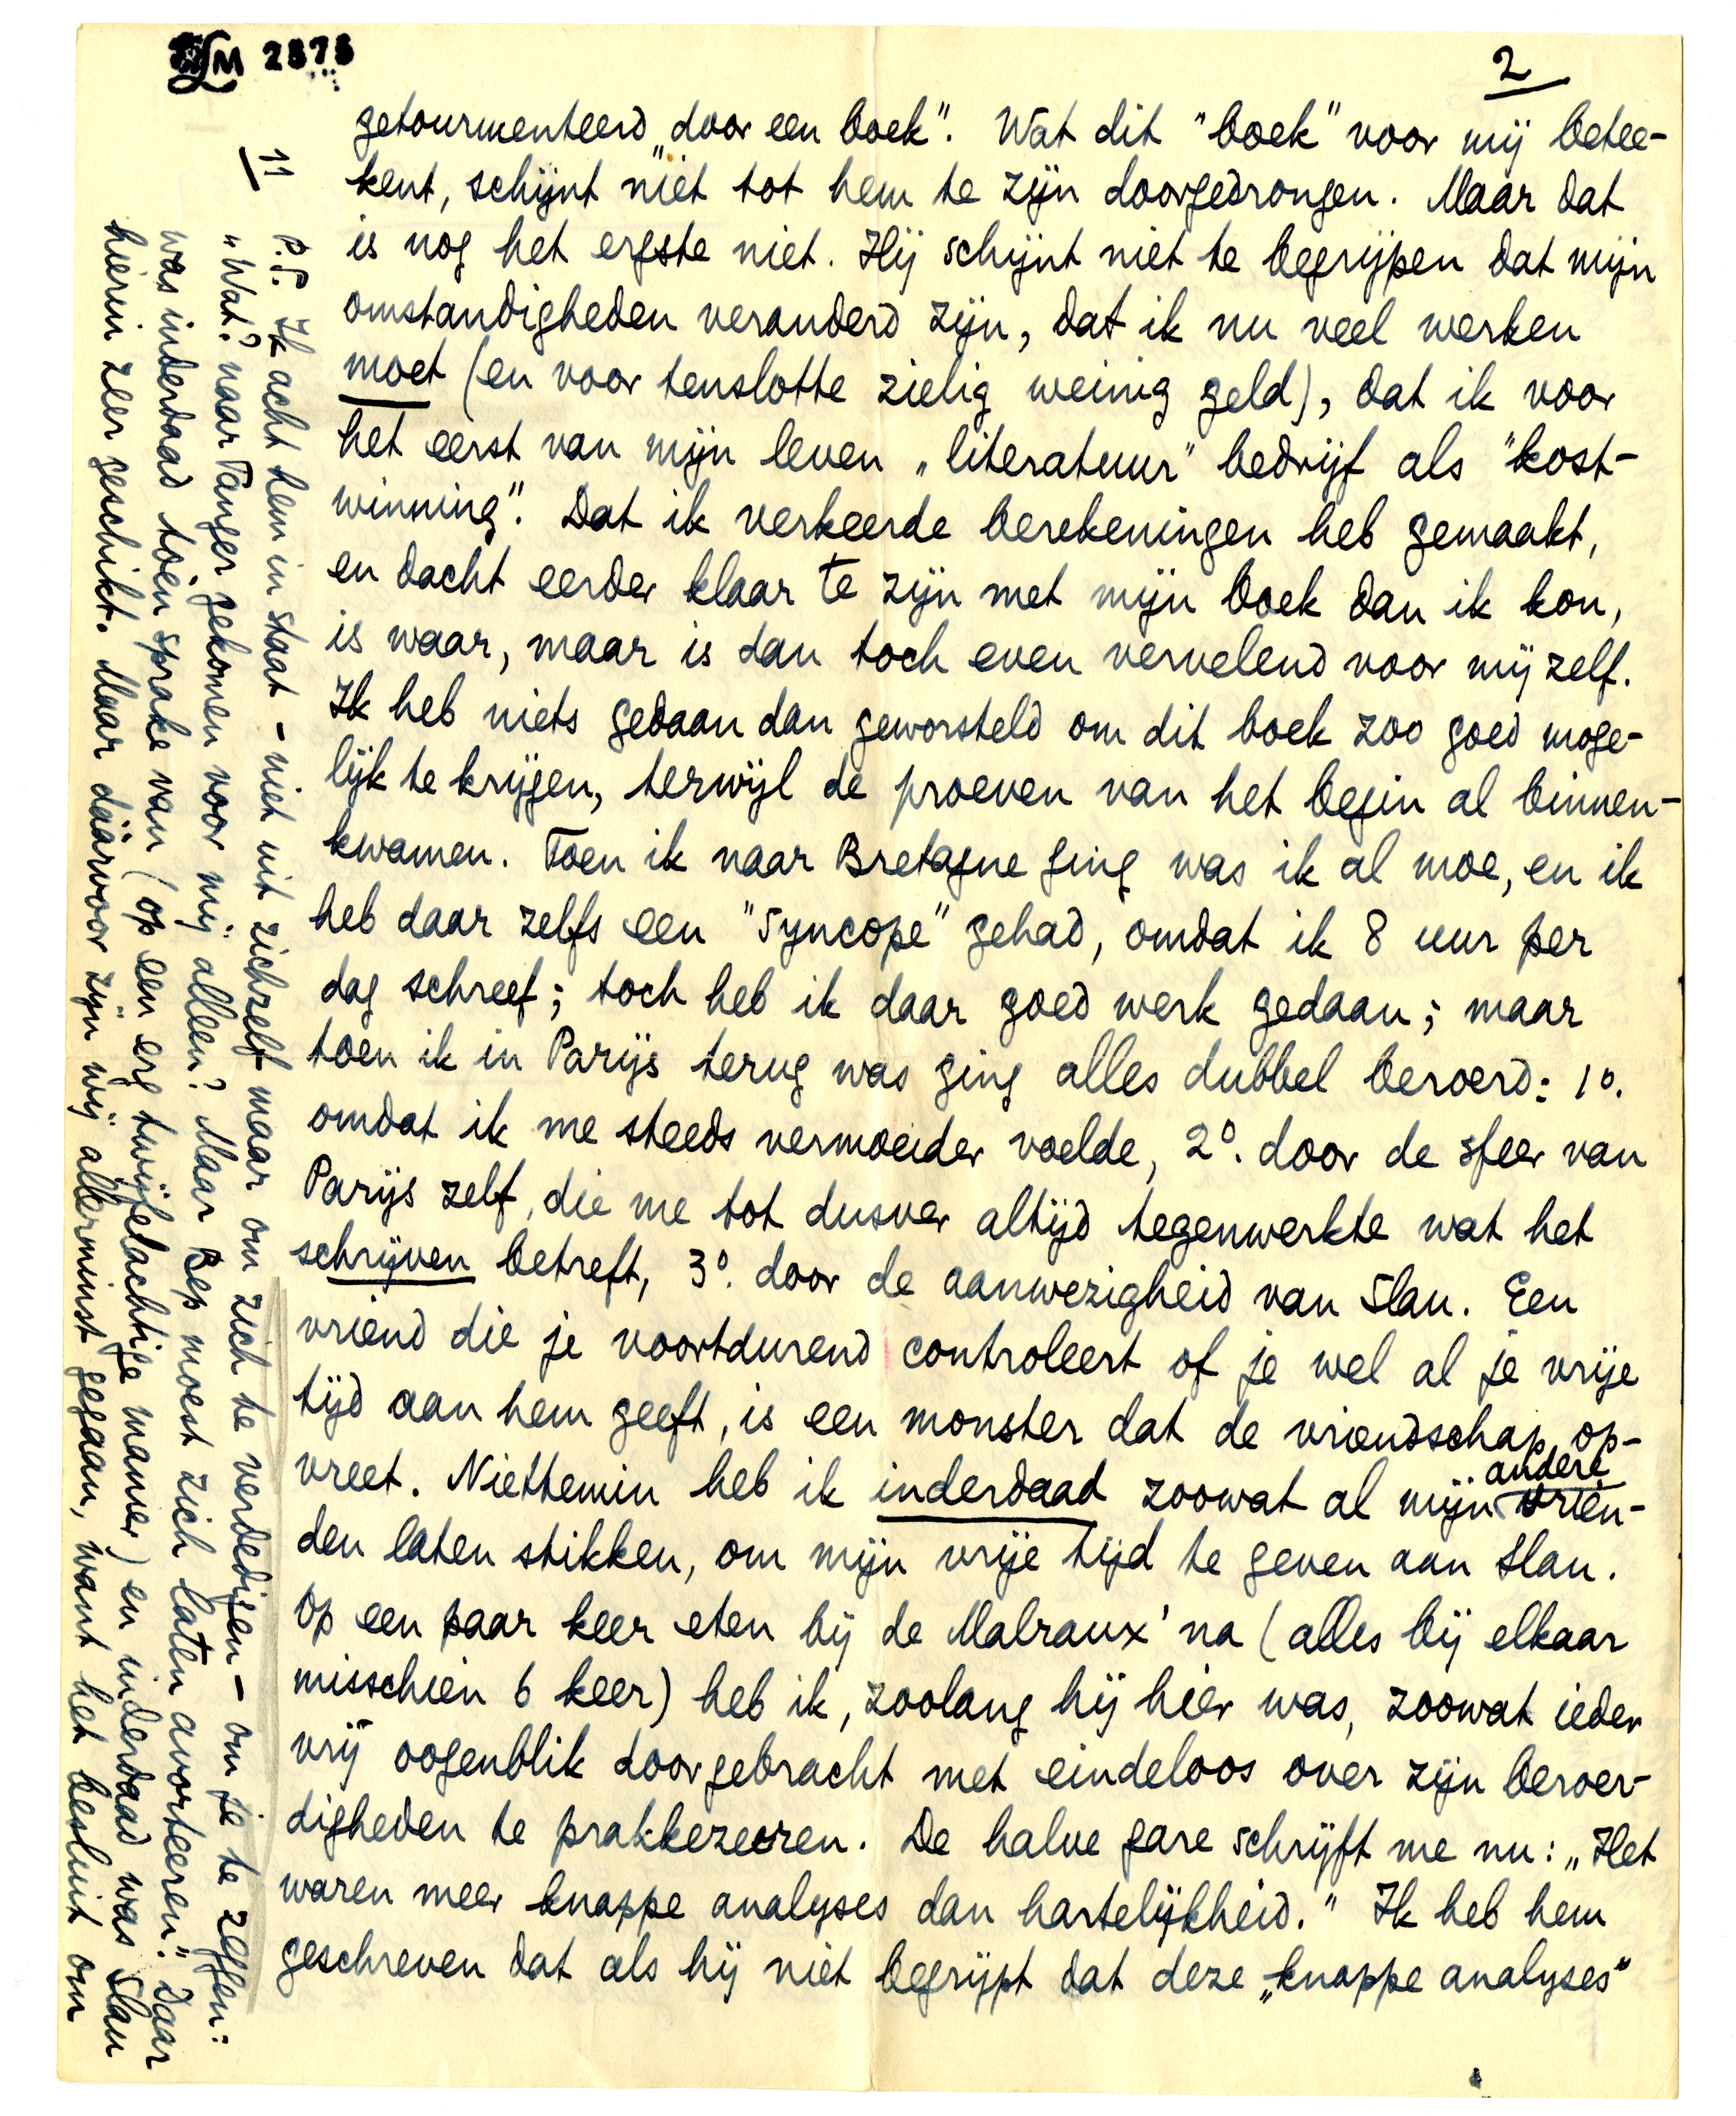 LM 2878
2
getourmenteerd „door een boek”. Wat dit "boek" voor mij betee-
kent, schijnt niet tot hem te zijn doorgedrongen. Maar dat
is nog het ergste niet. Hij schijnt niet te begrijpen dat mijn
omstandigheden veranderd zijn, dat ik nu veel werken
moet (en voor tenslotte zielig weinig geld), dat ik voor
het eerst van mijn leven „literatuur” bedrijf als "kost-
winning". Dat ik verkeerde berekeningen heb gemaakt,
en dacht eerder klaar te zijn met mijn boek dan ik kon,
is waar, maar is dan toch even vervelend voor mijzelf.
Ik heb niets gedaan dan geworsteld om dit boek zoo goed moge-
lijk te krijgen, terwijl de proeven van het begin al binnen-
kwamen. Toen ik naar Bretagne ging was ik al moe, en ik
heb daar zelfs een "syncope" gehad, omdat ik 8 uur per
dag schreef; toch heb ik daar goed werk gedaan; maar
toen ik in Parijs terug was ging alles dubbel beroerd: 1º.
omdat ik me steeds vermoeider voelde, 2º. door de sfeer van
Parijs zelf, die me tot dusver altijd tegenwerkte wat het
schrijven betreft, 3º. door de aanwezigheid van Slau. Een
vriend die je voortdurend controleert of je wel al je vrije
tijd aan hem geeft, is een monster dat de vriendschap op-
vreet. Niettemin heb ik inderdaad zoowat al mijn andere vrien-
den laten stikken, om mijn vrije tijd te geven aan Slau.
Op een paar keer eten bij de Malraux' na (alles bij elkaar
misschien 6 keer) heb ik, zoolang hij hier was, zoowat ieder
vrij oogenblik doorgebracht met eindeloos over zijn beroer-
digheden te prakkezeeren. De halve gare schrijft me nu: „Het
waren meer knappe analyses dan hartelijkheid.” Ik heb hem
geschreven dat als hij niet begrijpt dat deze „knappe analyses”
11
P.P. Ik acht hem in staat – niet uit zichzelf maar om zich te verdedigen – om je te zeggen:
„Wat? naar Tanger gekomen voor mij alleen? Maar Bep moest zich laten avorteeren.” Daar
was inderdaad toen sprake van (op een erg twijfelachtige manier) en inderdaad was Slau
hierin zeer geschikt. Maar dáárvoor zijn wij allerminst gegaan, want het besluit om